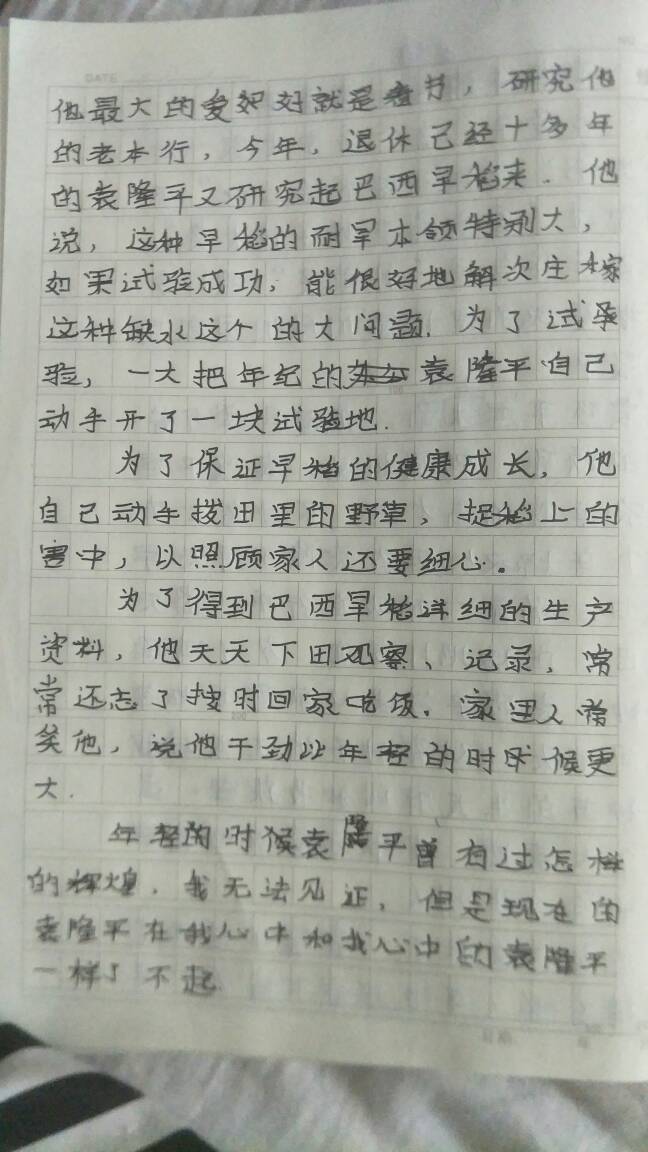 DATE
他最大的爱好就是看书，研究他
的老本行，今年，退休已经十多年
的袁隆平又研究起巴西旱稻来．他
说，这种旱稻的耐旱本领特别大，
如果试验成功，能很好地解次庄稼
这种缺水这个的大问题．为了试
验，一大把年纪的袁隆平自己
动手开了一块试验地．
为了保证旱稻的健康成长，他
自己动手拔田里的野草，捉稻上的
害虫，以照顾家人还要细心。
为了得到巴西旱稻详细的生产
资料，他天天下田观察、记录，常
常还忘了按时回家吃饭．家里人常
笑他，说他干劲比年轻的时候更
大．
年轻的时候袁隆平曾有过怎样
的辉煌，我无法见证，但是现在的
袁隆平在我心中和我心中的袁隆平
一样了不起．